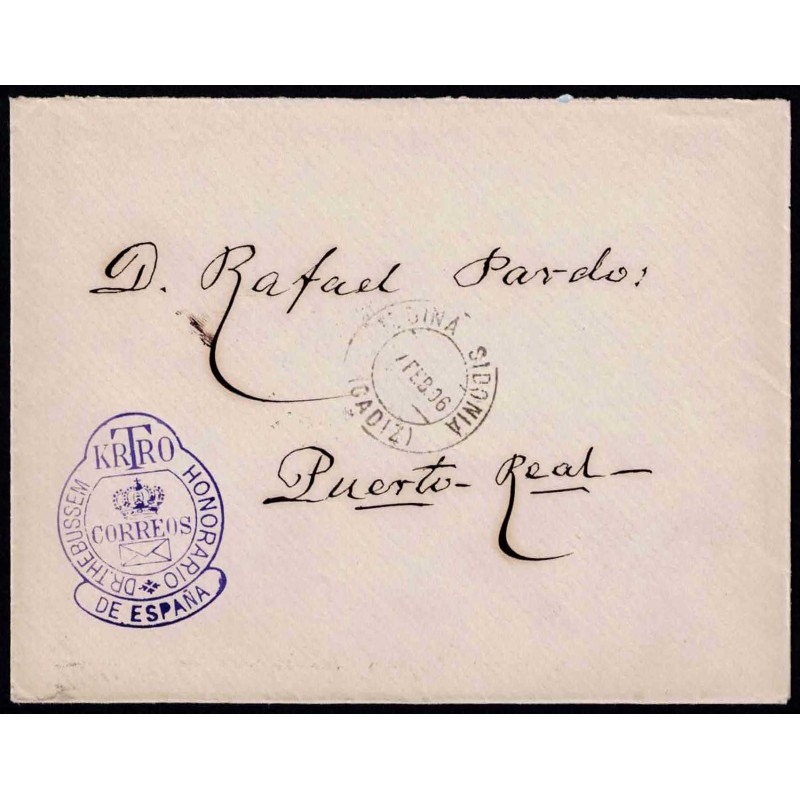 D. Rafael Pardo:
MEDINA SIDONIA
7 FEB 06
(CADIZ)
Puerto-Real-
KRTRO
HONORARIO
DR. THEBUSSEM
CORREOS
DE ESPAÑA